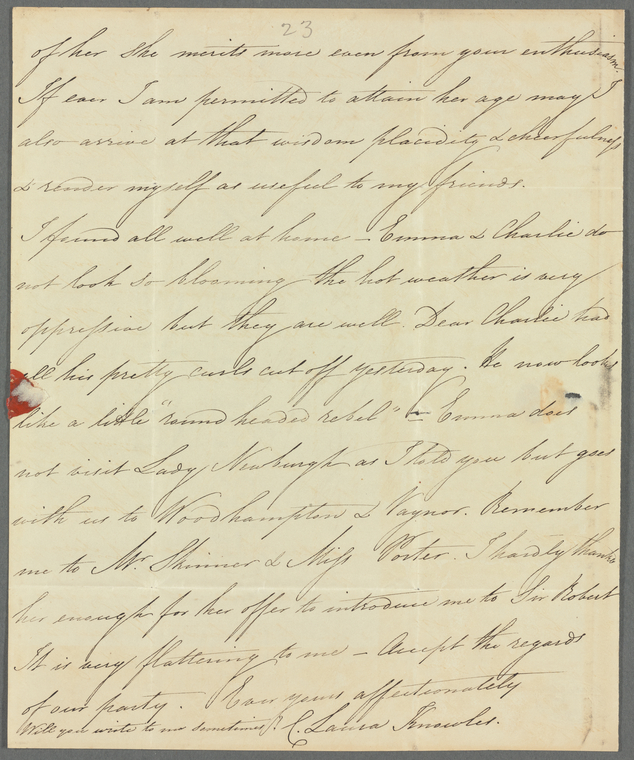 23
of her she merits more even from your enthusiasm.
If ever I am permitted to attain her age may I
also arrive at that wisdom placidity & cheerfulness
& render myself as useful to my friends.
I found all well at home – Emma & Charlie do
not look so blooming the hot weather is very
oppressive but they are well. Dear Charlie had
all his pretty curls cut off yesterday. He now looks
like a little "round headed rebel" – Emma does
not visit Lady Newburgh as I told you but goes
with us to Woodhampton & Vaynor. Remember
me to Mr. Skinner & Miss Porter. I hardly thank
her enough for her offer to introduce me to Sir Robert
It is very flattering to me – Accept the regards
of our party. Ever yours affectionately
Will you write to me sometimes? C. Laura Knowles.